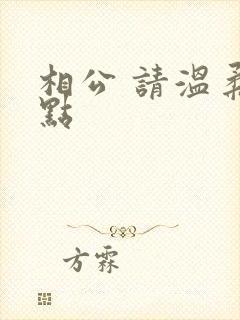 相公 請溫柔
點
方霖